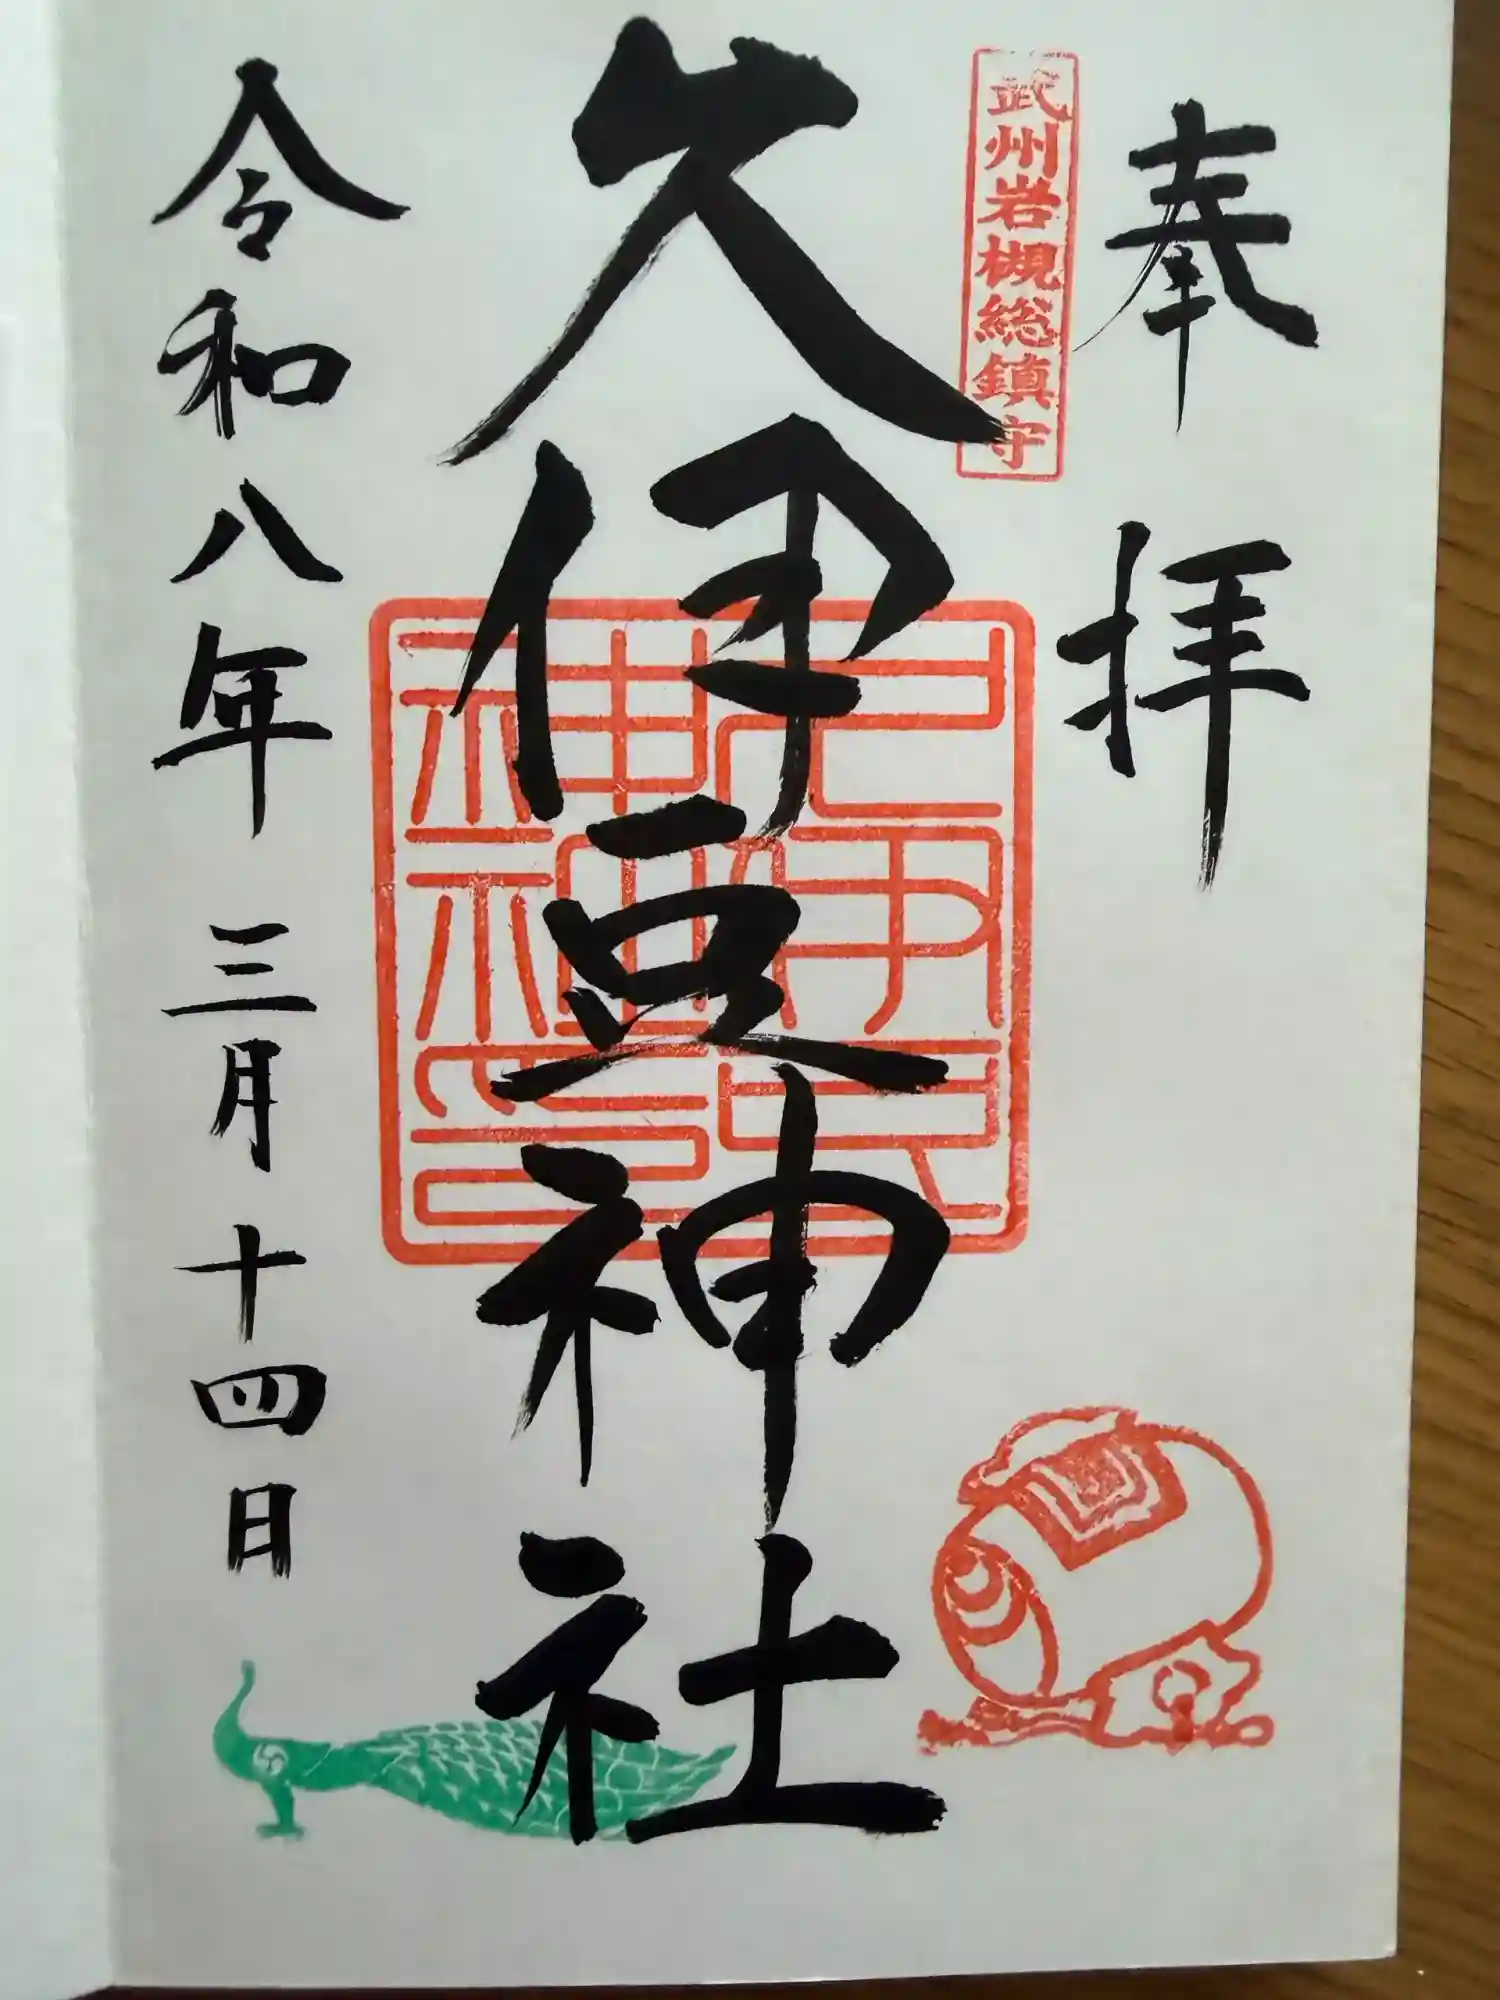 奉拝
武州岩槻総鎮守
久伊豆神社
令和八年三月十四日